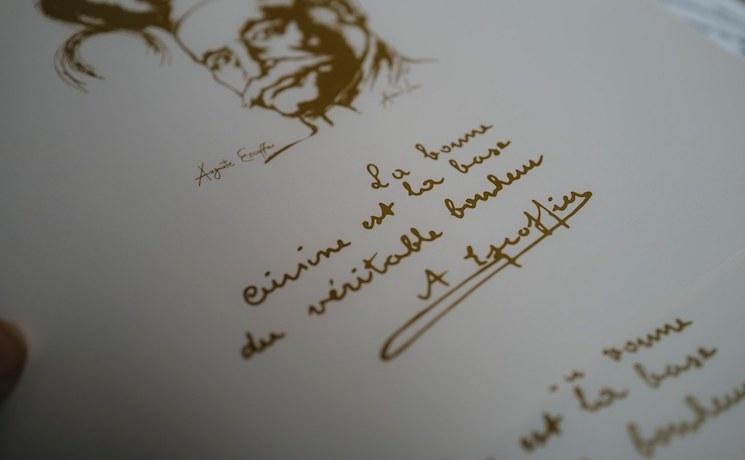 Auguste Escoffier
La bonne
cuisine est la base
du véritable bonheur
A Escoffier
bonne
est la base
bonheur